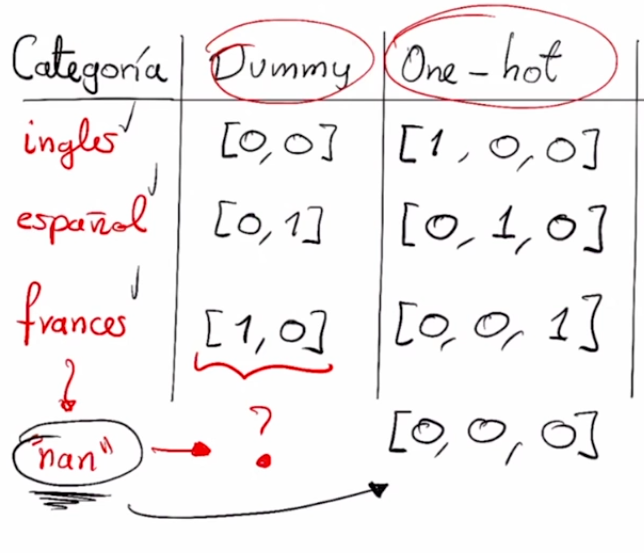 Categoría Dummy One-hot
ingles [0,0] [1,0,0]
español [0,1] [0,1,0]
frances [1,0] [0,0,1]
"nan" ? [0,0,0]